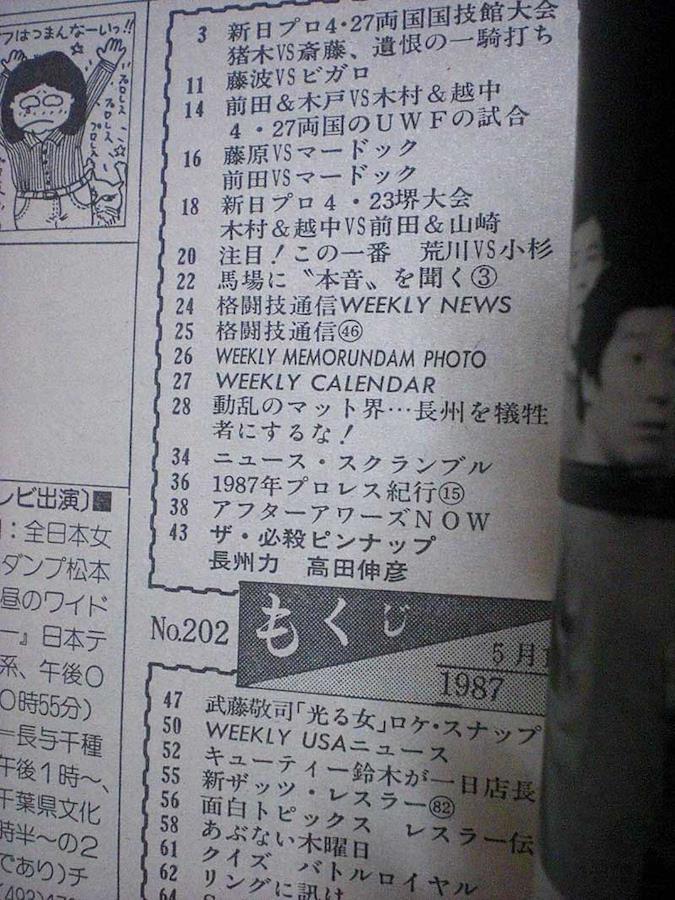 フはつまんなーいっ!!
プロレス
プロレス
プロレス
3 新日プロ4・27両国国技館大会
猪木VS斎藤、遺恨の一騎打ち
11 藤波VSビガロ
14 前田&木戸VS木村&越中
4・27両国のUWFの試合
16 藤原VSマードック
前田VSマードック
18 新日プロ4・23堺大会
木村&越中VS前田&山崎
20 注目!この一番 荒川VS小杉
22 馬場に〝本音〟を聞く③
24 格闘技通信WEEKLY NEWS
25 格闘技通信㊻
26 WEEKLY MEMORUNDAM PHOTO
27 WEEKLY CALENDAR
28 動乱のマット界…長州を犠牲
者にするな!
34 ニュース・スクランブル
36 1987年プロレス紀行⑮
38 アフターアワーズNOW
43 ザ・必殺ピンナップ
長州力 高田伸彦
No.202 もくじ
5月1
1987
47 武藤敬司「光る女」ロケ・スナップ
50 WEEKLY USAニュース
52 キューティー鈴木が一日店長
55 新ザッツ・レスラー(82)
56 面白トピックス レスラー伝
58 あぶない木曜日
61 クイズ バトルロイヤル
62 リングに訊け
64
レビ出演)■
:全日本女
ダンプ松本
昼のワイド
ー』日本テ
系、午後0
0時55分)
=長与千種
午後1時〜、
千葉県文化
時半〜の2
であり)チ